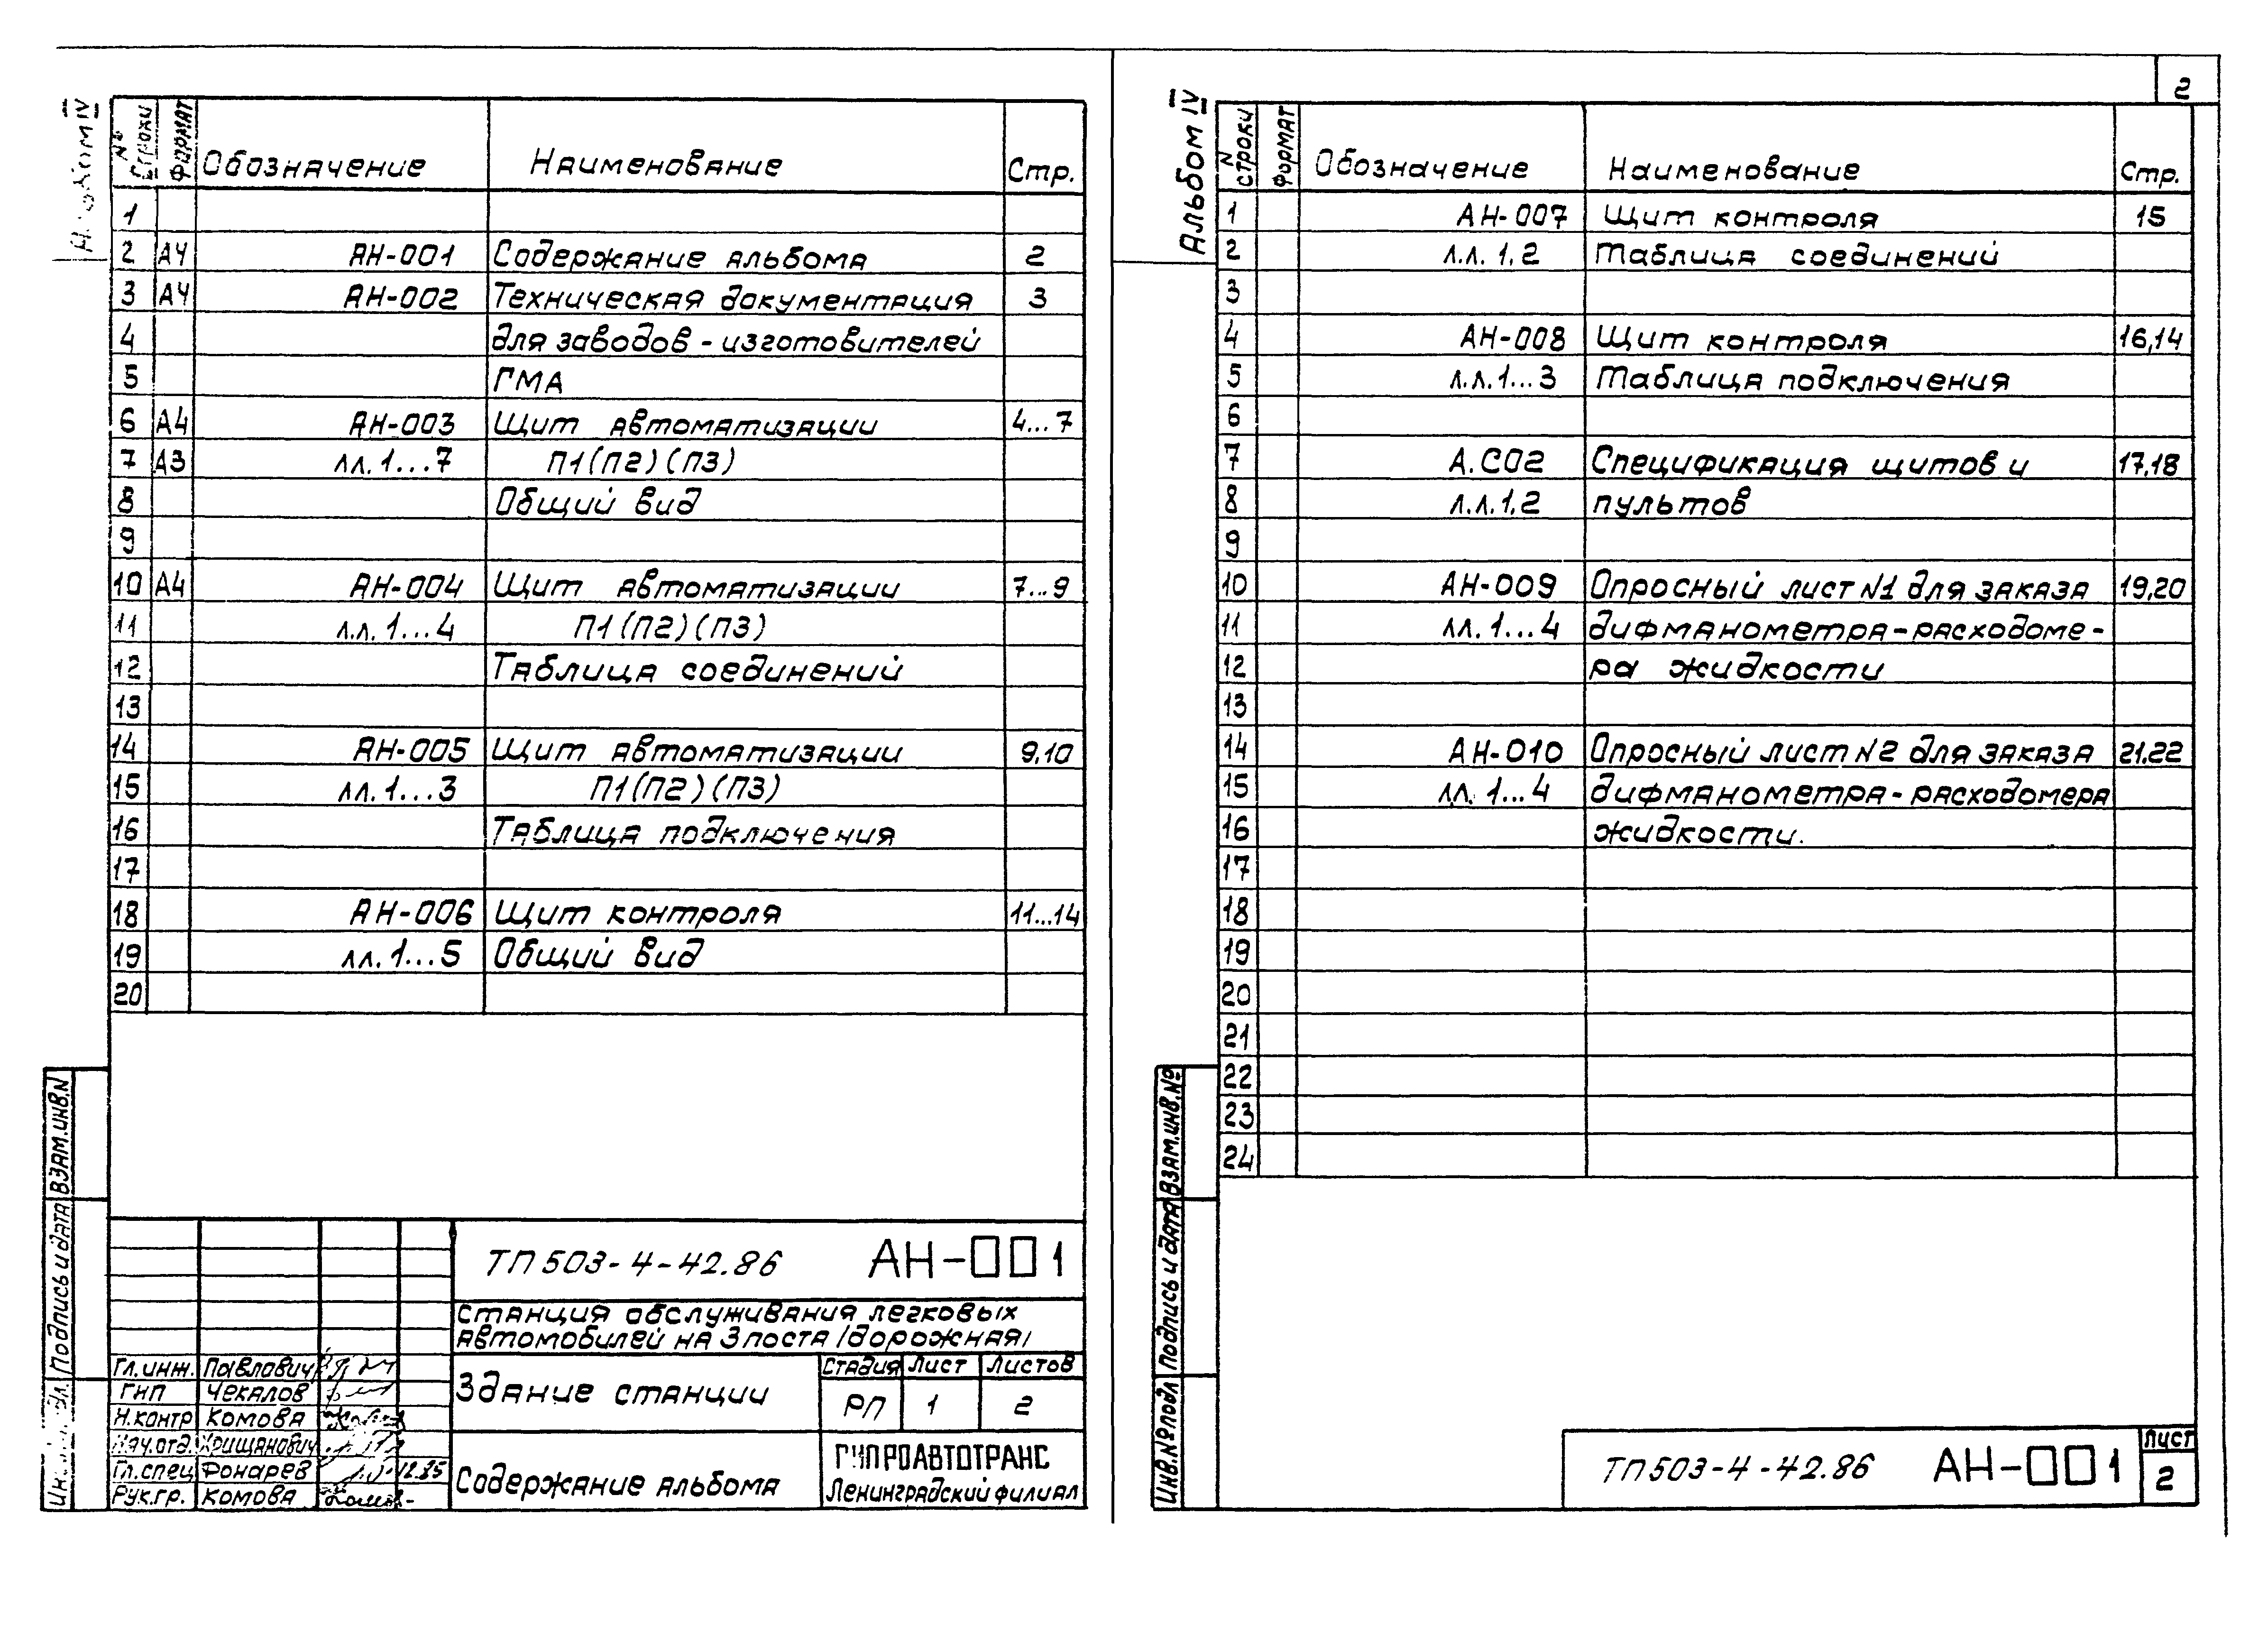 Альбом IV
№ строки ФОРМАТ Обозначение Наименование Стр.
1
2 А4 АН-001 Содержание альбома 2
3 А4 АН-002 Техническая документация 3
4 для заводов - изготовителей
5 ГМА
6 А4 АН-003 Щит автоматизации 4...7
7 А3 лл. 1...7 П1(П2)(П3)
8 Общий вид
9
10 А4 АН-004 Щит автоматизации 7...9
11 л.л. 1...4 П1(П2)(П3)
12 Таблица соединений
13
14 АН-005 Щит автоматизации 9,10
15 лл. 1...3 П1(П2)(П3)
16 Таблица подключения
17
18 АН-006 Щит контроля 11...14
19 лл. 1...5 Общий вид
20
ВЗАМ.ИНВ.N
Подпись и дата
ТП503-4-42.86 АН-001
Станция обслуживания легковых
автомобилей на 3 поста /дорожная/
Гл.инж. Павлович
ГИП Чекалов
Н.контр Комова
Нач.отд. Хрищанович
Гл.спец Фонарев 12.85
Рук.гр. Комова
Здание станции
Стадия Лист Листов
РП 1 2
Содержание альбома
ГИПРОАВТОТРАНС
Ленинградский филиал
2
Альбом IV
N строки ФОРМАТ Обозначение Наименование Стр.
1 АН-007 Щит контроля 15
2 л.л. 1,2 Таблица соединений
3
4 АН-008 Щит контроля 16,14
5 л.л.1...3 Таблица подключения
6
7 А.СО2 Спецификация щитов и 17,18
8 л.л.1,2 пультов
9
10 АН-009 Опросный лист N1 для заказа 19,20
11 лл. 1...4 дифманометра-расходоме-
12 ра жидкости
13
14 АН-010 Опросный лист N2 для заказа 21,22
15 лл. 1...4 дифманометра-расходомера
16 жидкости.
17
18
19
20
21
22
23
24
ВЗАМ.ИНВ.№
Подпись и дата
ИНВ.№ подл
ТП503-4-42.86 АН-001
Лист
2